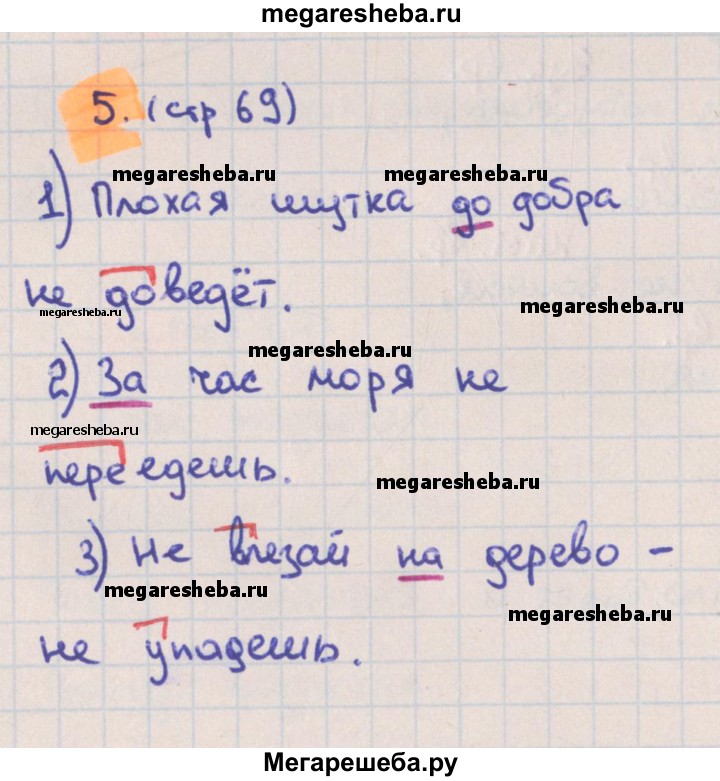 megaresheba.ru
5. (стр 69)
megaresheba.ru megaresheba.ru
1) Плохая шутка до добра
не доведёт.
megaresheba.ru megaresheba.ru
megaresheba.ru
2) За час моря не
megaresheba.ru
переедешь.
megaresheba.ru
3) Не влезай на дерево -
megaresheba.ru megaresheba.ru
не упадешь.
Мегарешеба.ру